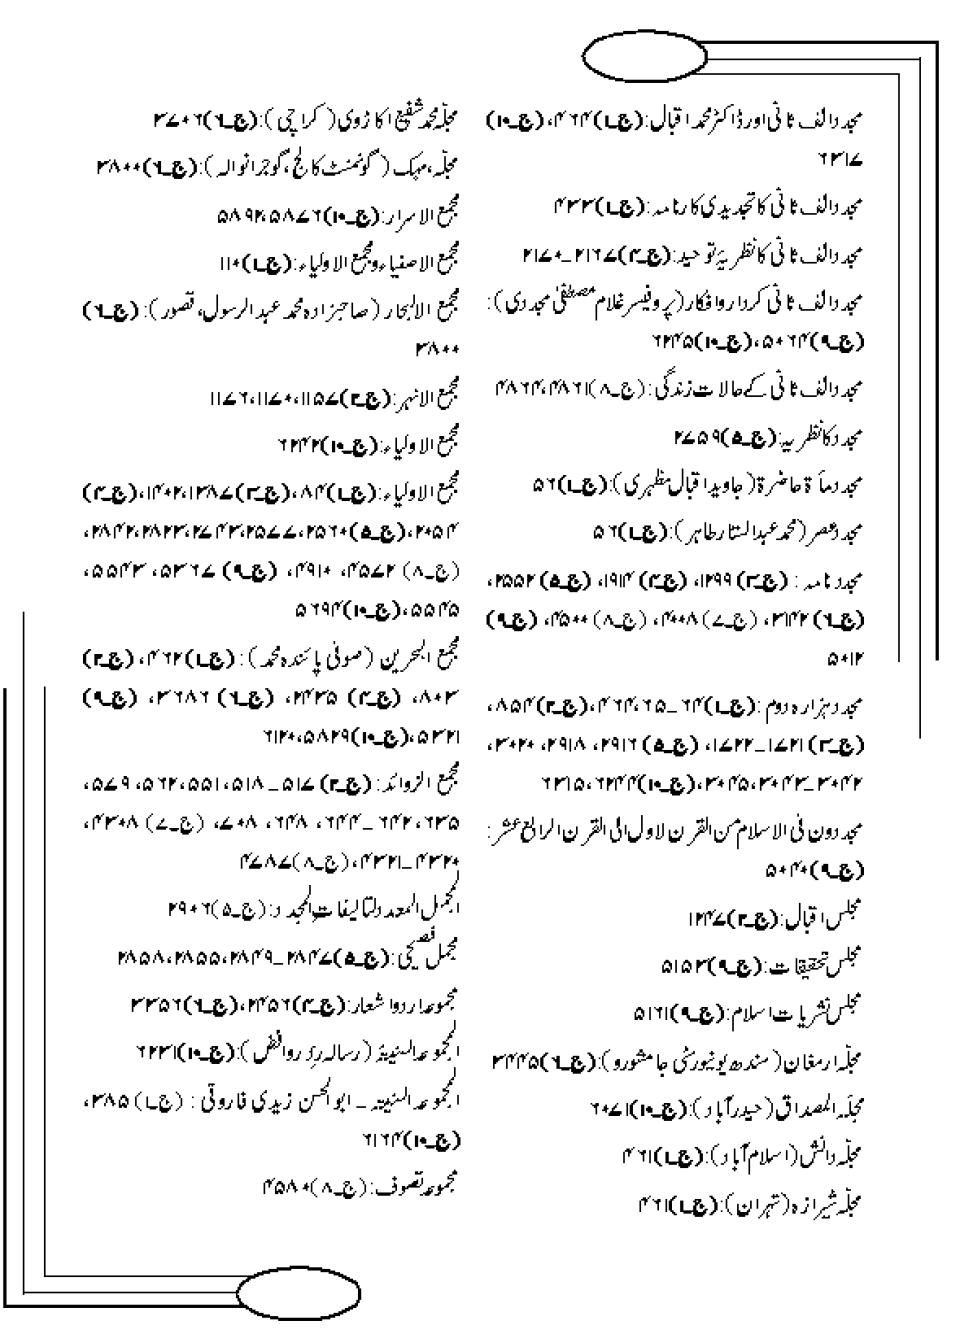 مجدد الف ثانی اور ڈاکٹر محمد اقبال: (ج۔۱) ۴۶۴، (ج۔۱۰)
۶۳۱۷
مجدد الف ثانی کا تجدیدی کارنامہ: (ج۔۱) ۴۳۳
مجدد الف ثانی کا نظریۂ توحید: (ج۔۴) ۲۱۶۷۔۲۱۷۰
مجدد الف ثانی کردار وافکار (پروفیسر غلام مصطفیٰ مجددی):
(ج۔۹) ۵۰۶۴، (ج۔۱۰) ۶۲۴۵
مجدد الف ثانی کے حالات زندگی: (ج۔۸) ۴۸۶۱، ۴۸۶۴
مجدد کا نظریہ: (ج۔۵) ۲۷۵۹
مجدد مأۃ حاضرۃ (جاوید اقبال مظہری): (ج۔۱) ۵۶
مجدد عصر (محمد عبدالستار طاہر): (ج۔۱) ۵۶
مجدد نامہ: (ج۔۳) ۱۲۹۹، (ج۔۴) ۱۹۱۴، (ج۔۵) ۲۵۵۲،
(ج۔۶) ۳۱۴۲، (ج۔۷) ۴۰۰۸، (ج۔۸) ۴۵۰۰، (ج۔۹)
۵۰۱۲
مجدد ہزارہ دوم: (ج۔۱) ۶۴۔۶۵، ۴۶۴، (ج۔۲) ۸۵۴،
(ج۔۳) ۱۷۲۱۔۱۷۲۲، (ج۔۵) ۲۹۱۶، ۲۹۱۸، ۳۰۲۰،
۳۰۴۲۔۳۰۴۳، ۳۰۴۵، (ج۔۱۰) ۶۲۴۴، ۶۳۱۵
مجددون فی الاسلام من القرن لاول الی القرن الرابع عشر:
(ج۔۹) ۵۰۴۰
مجلس اقبال: (ج۔۲) ۱۲۴۷
مجلس تحقیقات: (ج۔۹) ۵۱۵۳
مجلس نشریات اسلام: (ج۔۹) ۵۱۶۱
مجلّہ ارمغان (سندھ یونیورسٹی جامشورو): (ج۔۶) ۳۴۴۵
مجلّہ المصداق (حیدرآباد): (ج۔۱۰) ۶۰۷۱
مجلّہ دانش (اسلام آباد): (ج۔۱) ۴۶۱
مجلّہ شیرازہ (تہران): (ج۔۱) ۴۶۱
مجلّہ محمد شفیع اکاڑوی (کراچی): (ج۔۶) ۳۷۰۶
مجلّہ، مہک (گونمنٹ کالج، گوجرانوالہ): (ج۔۶) ۳۸۰۰
مجمع الاسرار: (ج۔۱۰) ۵۸۷۶، ۵۸۹۲
مجمع الاصفیاء ومجمع الاولیاء: (ج۔۱) ۱۱۰
مجمع الابحار (صاحبزادہ محمد عبدالرسول، قصور): (ج۔۶)
۳۸۰۰
مجمع الانہر: (ج۔۲) ۱۱۵۷، ۱۱۷۰، ۱۱۷۶
مجمع الاولیاء: (ج۔۱۰) ۶۲۴۲
مجمع الاولیاء: (ج۔۱) ۸۴، (ج۔۳) ۱۳۸۷، ۱۴۰۲، (ج۔۴)
۲۰۵۴، (ج۔۵) ۲۵۶۰، ۲۵۷۷، ۲۷۴۳، ۲۸۲۳، ۲۸۴۲،
(ج۔۸) ۴۵۷۲، ۴۹۱۰، (ج۔۹) ۵۳۶۷، ۵۵۴۳،
۵۵۴۵، (ج۔۱۰) ۵۶۹۴
مجمع البحرین (صوفی پائندہ محمد): (ج۔۱) ۴۶۲، (ج۔۲)
۸۰۳، (ج۔۴) ۲۴۳۵، (ج۔۶) ۳۶۸۶، (ج۔۹)
۵۳۲۱، (ج۔۱۰) ۵۸۲۹، ۶۱۲۰
مجمع الزوائد: (ج۔۲) ۵۱۷۔۵۱۸، ۵۵۱، ۵۶۲، ۵۷۹،
۶۳۵، ۶۴۲۔۶۴۴، ۶۴۸، ۷۰۸، (ج۔۷) ۴۳۰۸،
۴۳۲۰۔۴۳۲۱، (ج۔۸) ۴۷۸۷
المجمل المعدد لتالیفات المجدد: (ج۔۵) ۲۹۰۶
مجمل فصیحی: (ج۔۵) ۲۸۴۷۔۲۸۴۹، ۲۸۵۵، ۲۸۵۸
مجموعہ اردو اشعار: (ج۔۴) ۲۴۵۶، (ج۔۶) ۳۳۵۶
المجموعۃ السنیۃ (رسالہ ردِ روافض): (ج۔۱۰) ۶۲۳۱
المجموعہ السنیہ ۔ ابوالحسن زیدی فاروقی: (ج۔۱) ۳۸۵،
(ج۔۱۰) ۶۱۶۴
مجموعہ تصوف: (ج۔۸) ۴۵۸۰